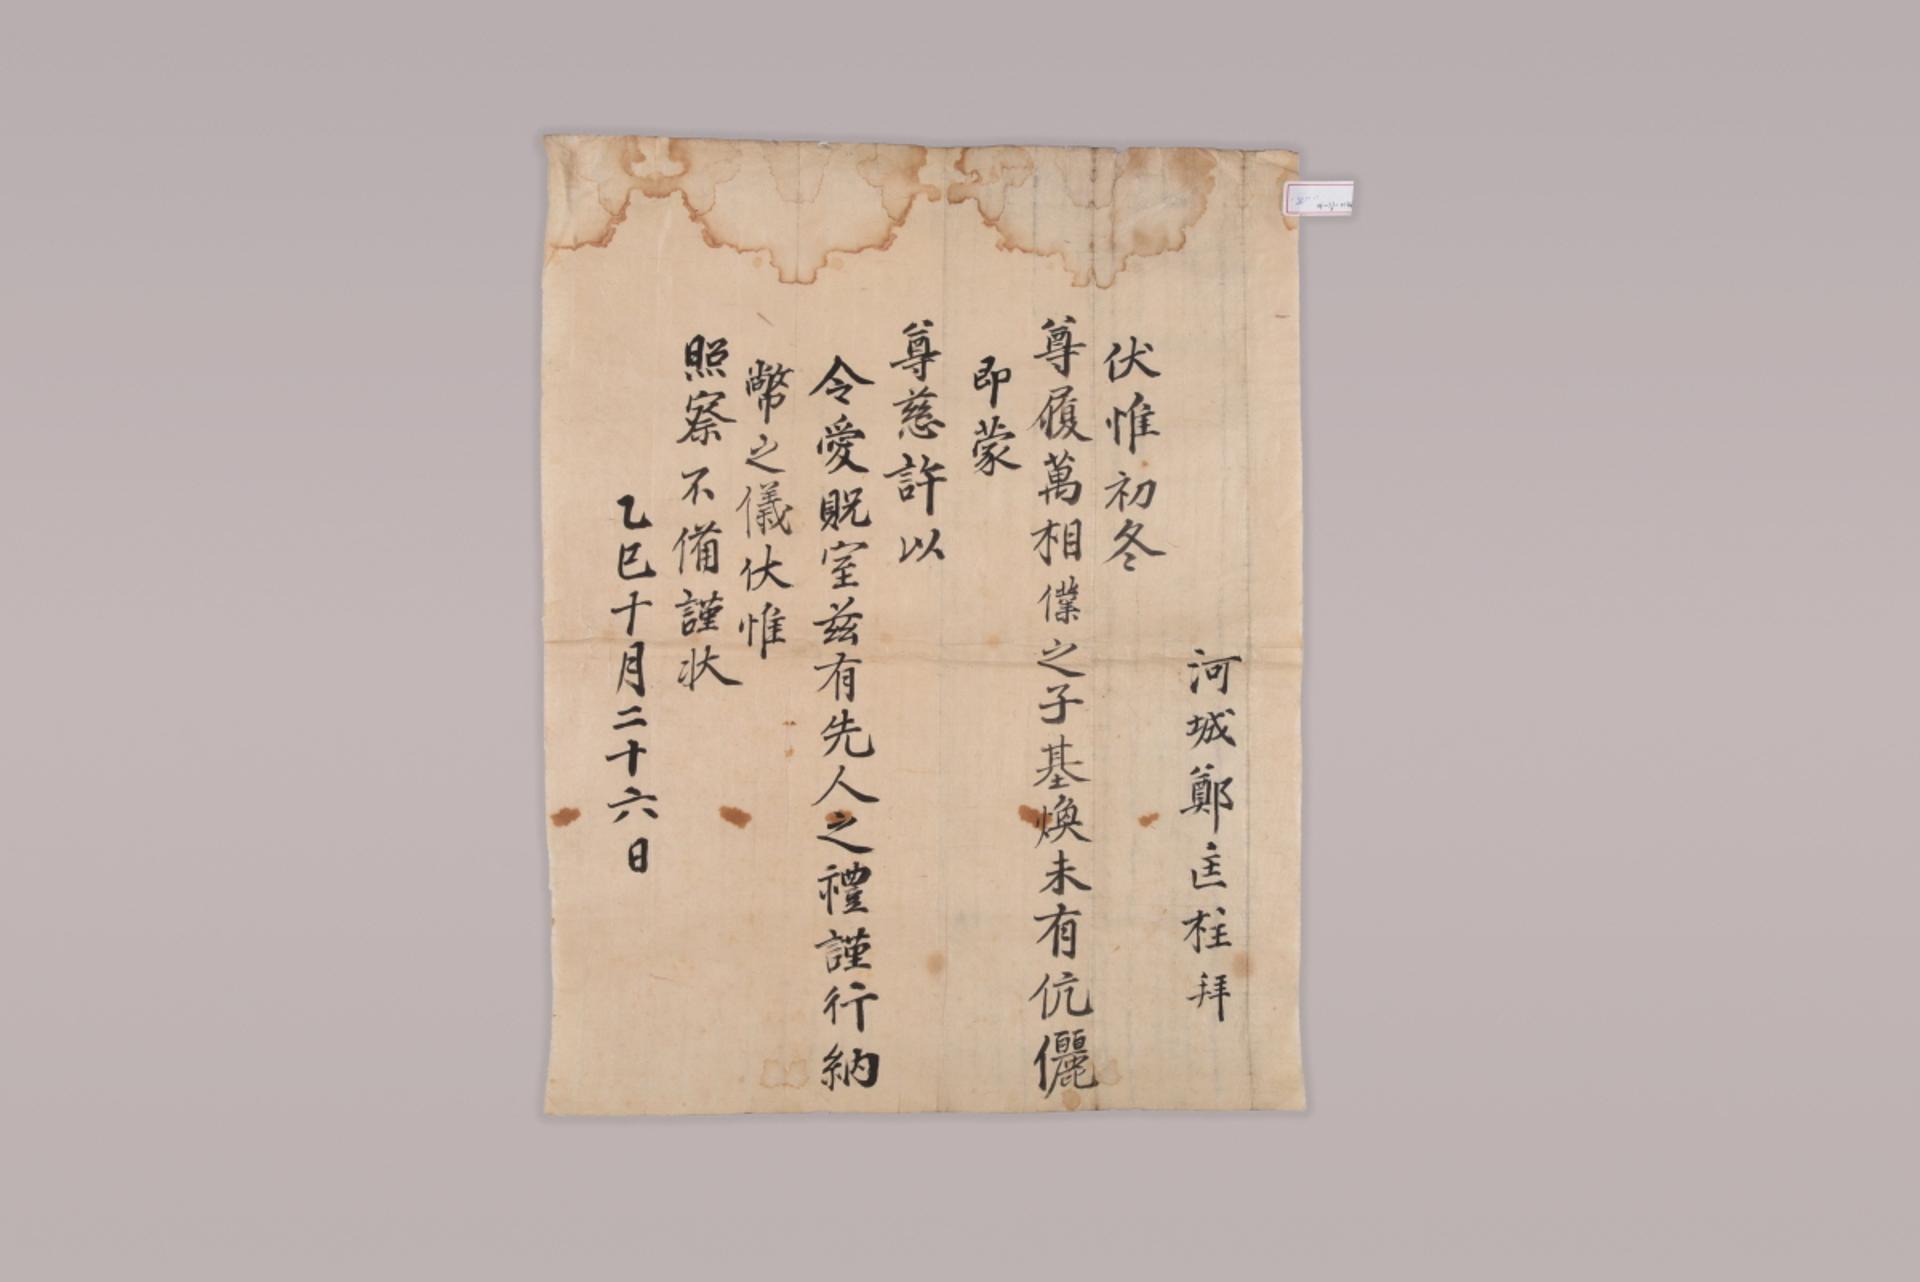 河城鄭匡柱拜
伏惟初冬
尊履萬相僕之子基煥未有伉儷
即蒙
尊慈許以
令愛貺室玆有先人之禮謹行納
幣之儀伏惟
照察不備謹狀
乙巳十月二十六日